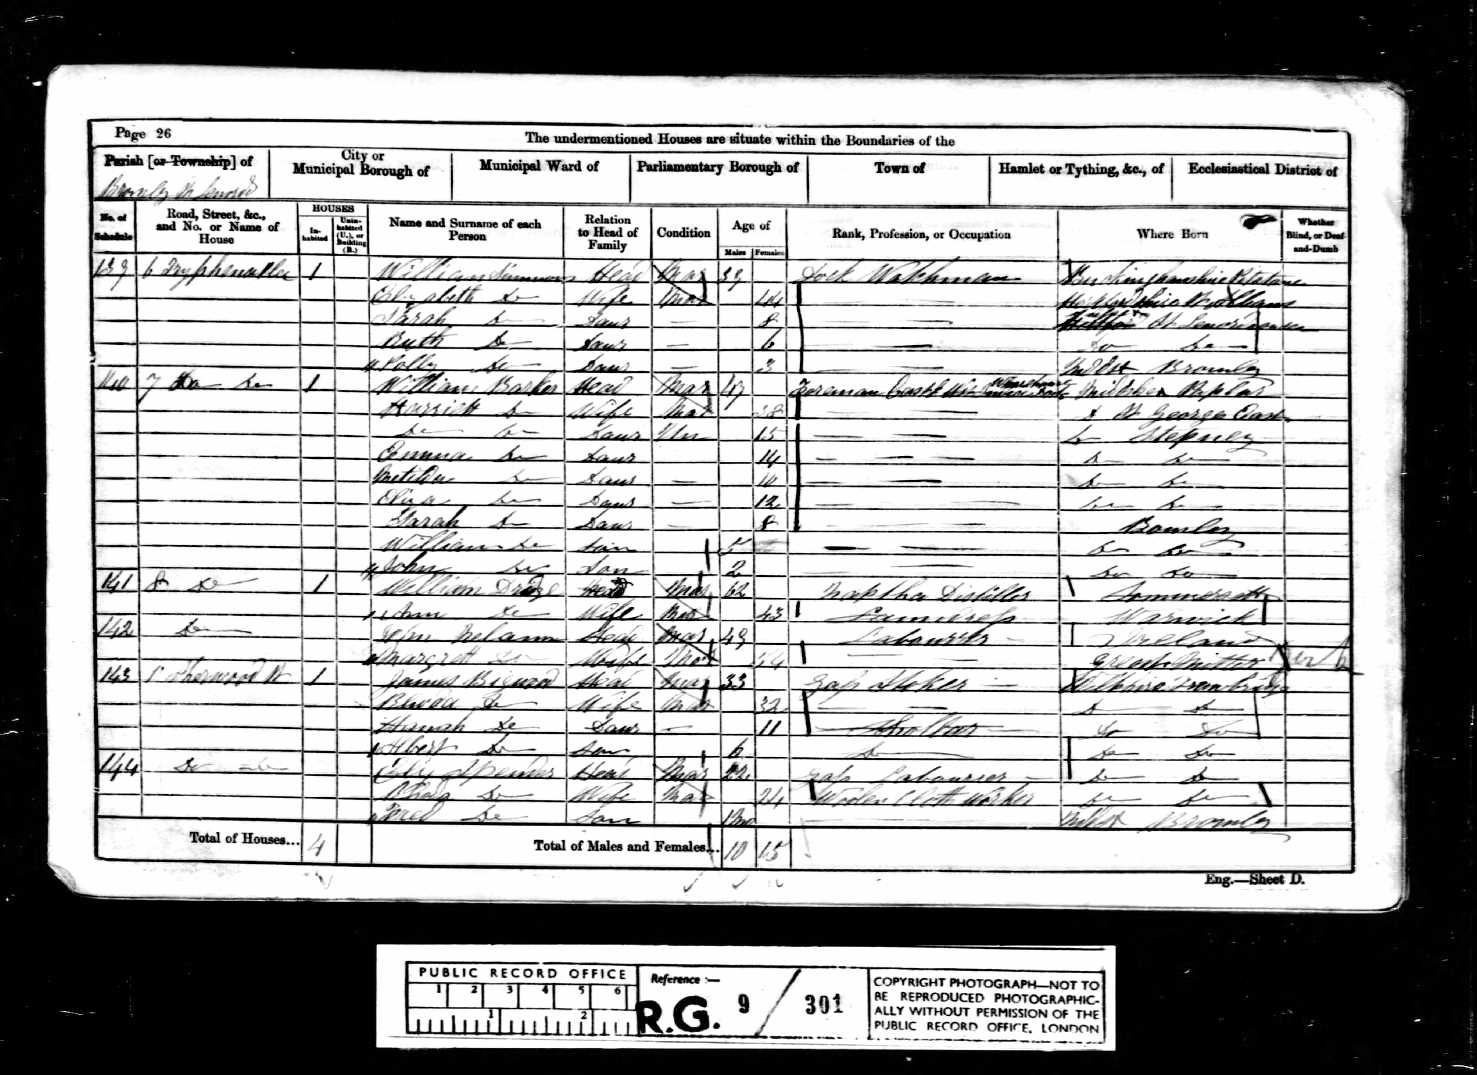 Page 26
The undermentioned Houses are situate within the Boundaries of the
Parish [or Township] of
City or Municipal Borough of
Municipal Ward of
Parliamentary Borough of
Town of
Hamlet or Tything, &c., of
Ecclesiastical District of
Bromley St Leonards
No. of Schedule
Road, Street, &c., and No. or Name of House
HOUSES
In-habited
Unin-habited (U.), or Building (B.)
Name and Surname of each Person
Relation to Head of Family
Condition
Age of
Males
Females
Rank, Profession, or Occupation
Where Born
Whether Blind, or Deaf-and-Dumb
139 6 1 William Simmons Head Mar 39 Dock Watchman Buckinghamshire
Elizabeth Do Wife Mar 44
Sarah Do Daur — 8
Ruth Do Daur — 6 Do Do
Polly Do Daur — 3 Bromley
140 7 Do Do 1 William Barker Head Mar 47 Foreman Middlesex Poplar
Harriett Do Wife Mar 38 St George East
Do Do Daur Un 15 Do Stepney
Emma Do Daur 14 Do Do
Matilda Do Daur — 10 Do Do
Eliza Do Daur — 12 Do Do
Sarah Do Daur — 8 Bromley
William Do Son 5 Do Do
John Do Son 2 Do Do
141 8 Do 1 William Head Mar 62 Naptha Distiller
Ann Do Wife Mar 43 Laundress Warwick
142 Do Head Mar 49 Labourer Ireland
Margrett Do Wife Mar 54
143 1 Sherwood St 1 James Head Mar 33 Gas Stoker Wiltshire
Do Wife Mar 32 Do Do
Hannah Do Daur — 11 Scholar Do Do
Albert Do Son 6 Do Do Do
144 Do Do Spender Head Mar 22 Gas Labourer Do Do
Rhoda Do Wife Mar 24 Woolen Cloth Worker Do Do
Fred Do Son 1 Mo Bromley
Total of Houses... 4
Total of Males and Females... 10 15
Eng.—Sheet D.
PUBLIC RECORD OFFICE
1 2 3 4 5 6
1 2
Reference :—
R.G. 9 / 301
COPYRIGHT PHOTOGRAPH—NOT TO
BE REPRODUCED PHOTOGRAPHIC-
ALLY WITHOUT PERMISSION OF THE
PUBLIC RECORD OFFICE, LONDON